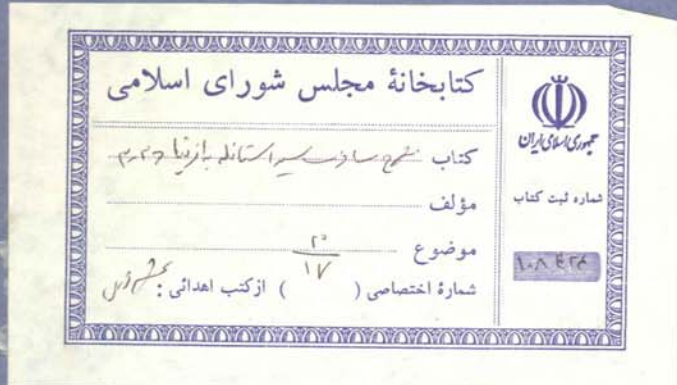 کتابخانهٔ مجلس شورای اسلامی
کتاب شرح مسافرت سیر استانله بافریقا
مؤلف
موضوع
۲۰
۱۷
شمارهٔ اختصاصی ( ) از کتب اهدائی :
جمهوری اسلامی ایران
شماره ثبت کتاب